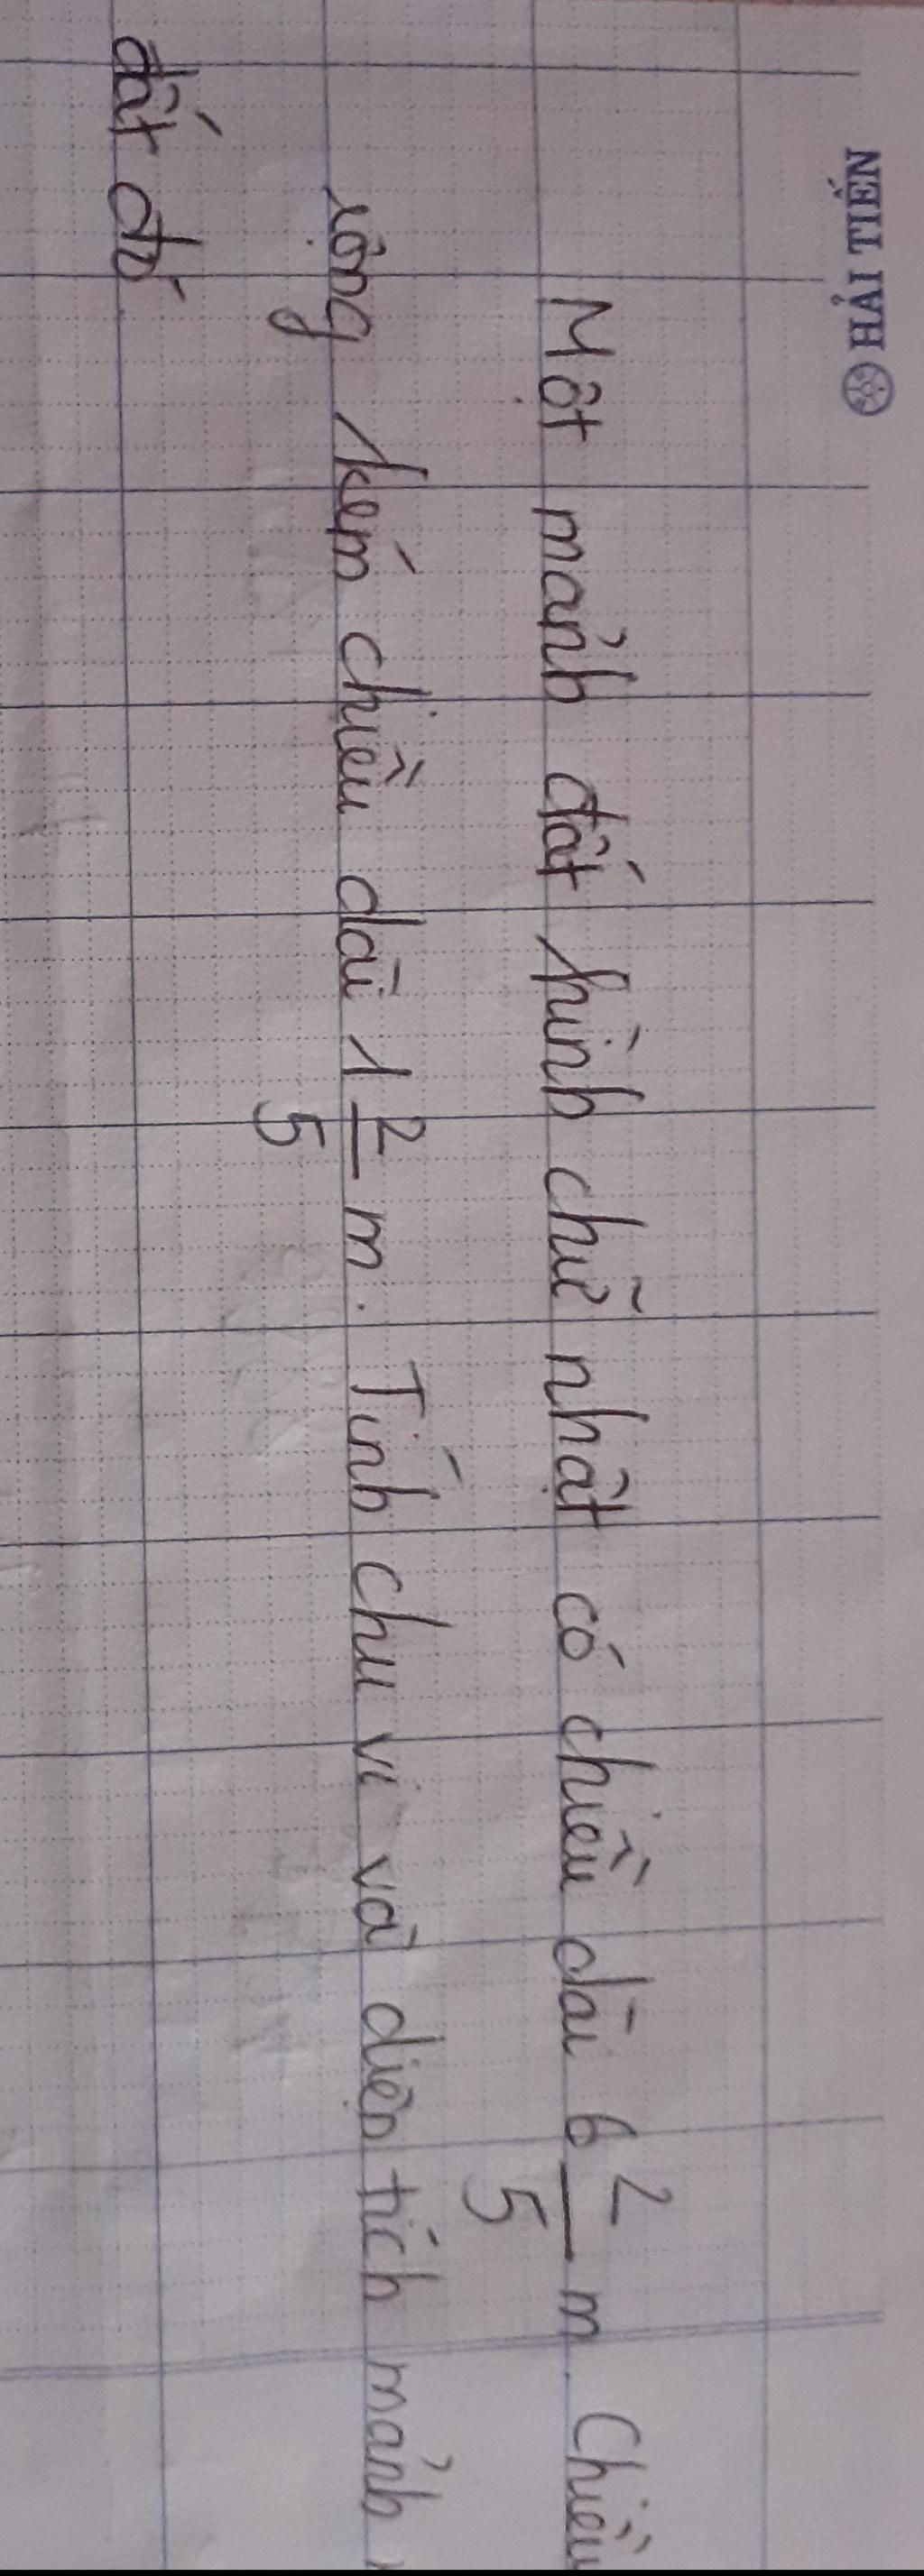 HẢI TIẾN
Một mảnh đất hình chữ nhật có chiều dài 6 2/5 m. Chiều
rộng kém chiều dài 1 2/5 m. Tính chu vi và diện tích mảnh
đất đó